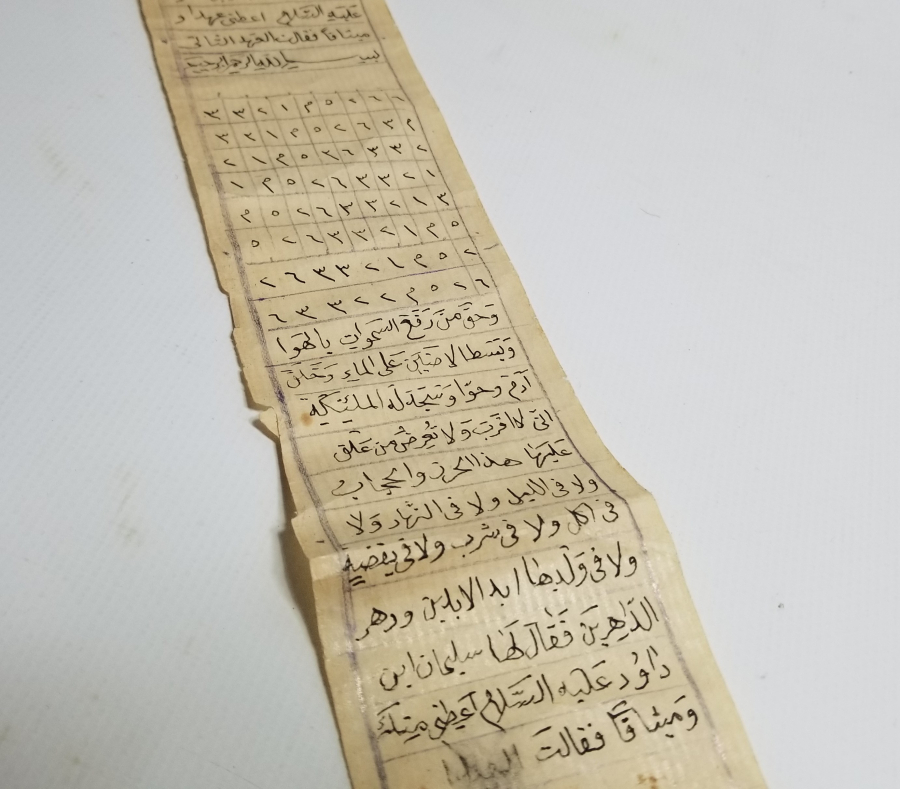 عليه السلام اعطني عهدا و
ميثاقا فقالت العهد الثاني
بسم الله الرحمن الرحيم
٣ ٣ ٢ ١ م ٥ ٢ ٦ ٦
٣ ٢ ١ م ٥ ٢ ٦ ٣ م
٢ ١ م ٥ ٢ ٦ ٣ ٣ ٢
١ م ٥ ٢ ٦ ٣ ٣ ٢ ١
م ٥ ٢ ٦ ٣ ٣ ٢ ١ ٣
٥ ٢ ٦ ٣ ٣ ٢ ١ م ٥
٢ ٦ ٣ ٣ ٢ ١ م ٥ ٢
٦ ٣ ٣ ٢ ٢ م ٥ ٢ ٦
وَحَقَّ مَنْ رَفَعَ السَّموات بالهوا
وبَسَط الاضين عَلى الماءِ وَخلق
آدم وحوّا وسَجَدَ لَه الملئيكة
اني لا اقرب وَلا تعرض من عَلّق
عَلَيها هذا الحرز والحجاب
ولا في الليل ولا في النهار وَلا
في اكل ولا في شرب ولا في يقضية
ولا في وَلَدِها ابد الابدين ودهر
الدَّاهِرينَ فَقَال لَها سليمان ابن
داوُد عَليه السَّلام اَعطِني
وَميثاقًا فقالت